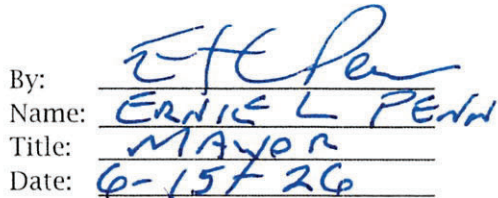 By:
Name: ERNIE L PENN
Title: MAYOR
Date: 6-15-26